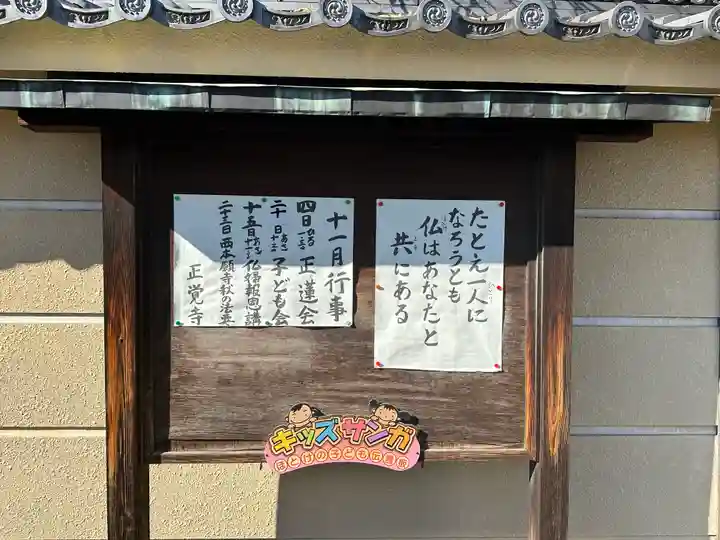 たとえ一人に
なろうとも
仏はあなたと
共にある
十一月行事
四日 正蓮会
二十日 子ども会
十五日 仏婦報恩講
二十三日 西本願寺秋の法要
正覚寺
キッズサンガ
ほとけの子ども伝言板